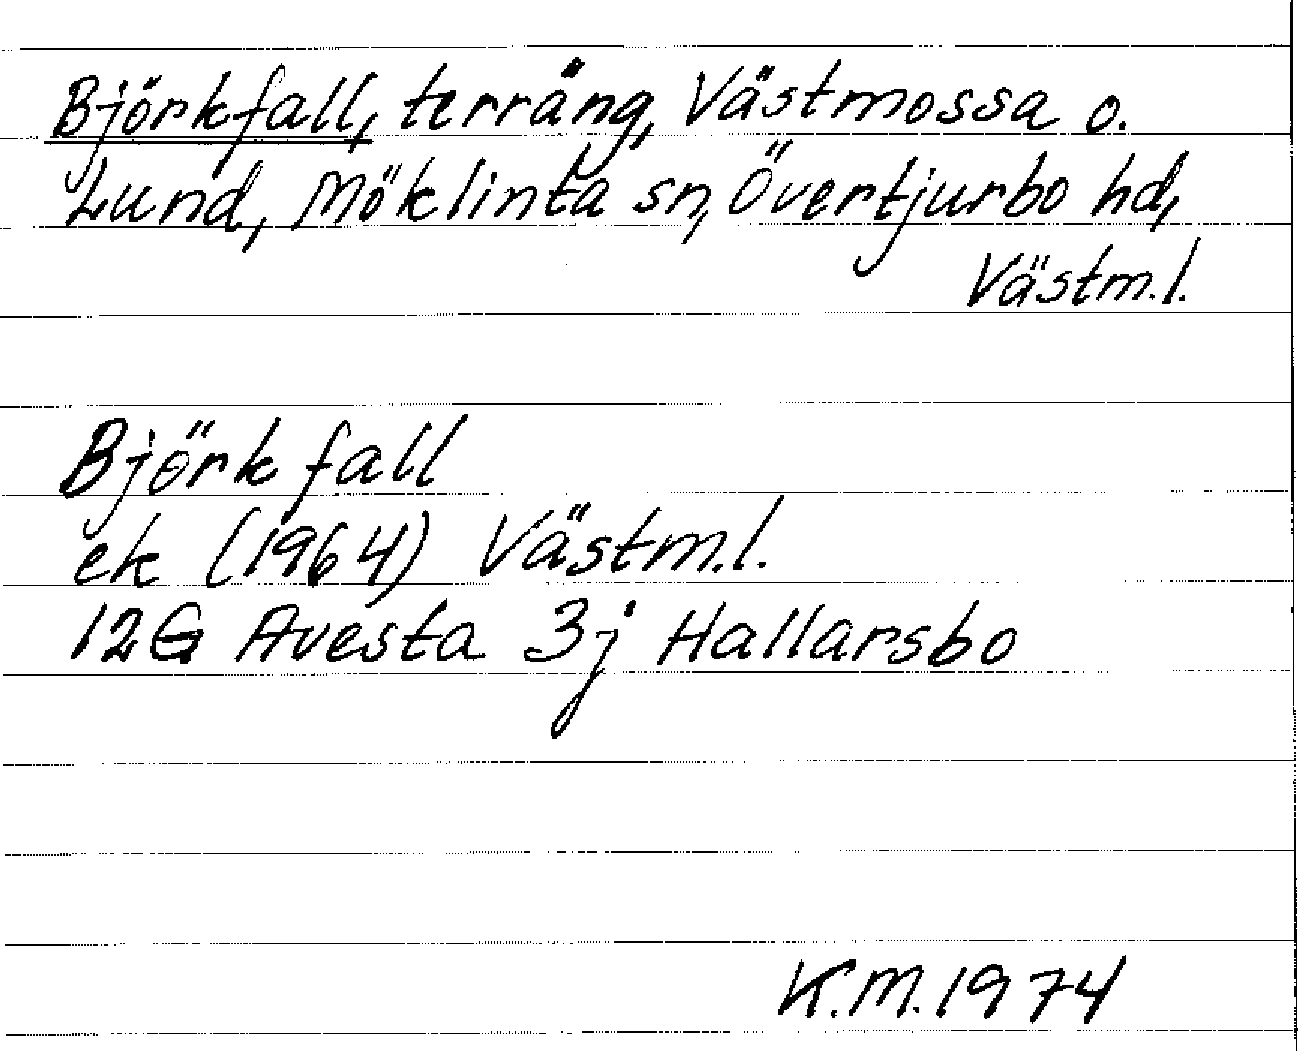 Björkfall, terräng, Västmossa o.
Lund, Möklinta sn, Övertjurbo hd,
Västm.l.
Björkfall
ek (1964) Västm.l.
12G Avesta 3j Hallarsbo
K.M. 1974